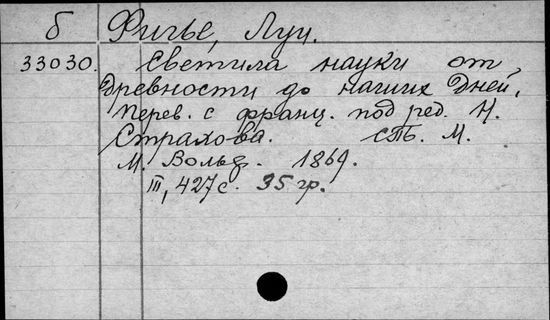 б Фигье, Луи.
33030. Светила науки от
древности до наших дней,
перев. с франц. под ред. Н.
Страхова. СПБ. М.
М. Вольф. 1869.
III, 427с. 35 гр.